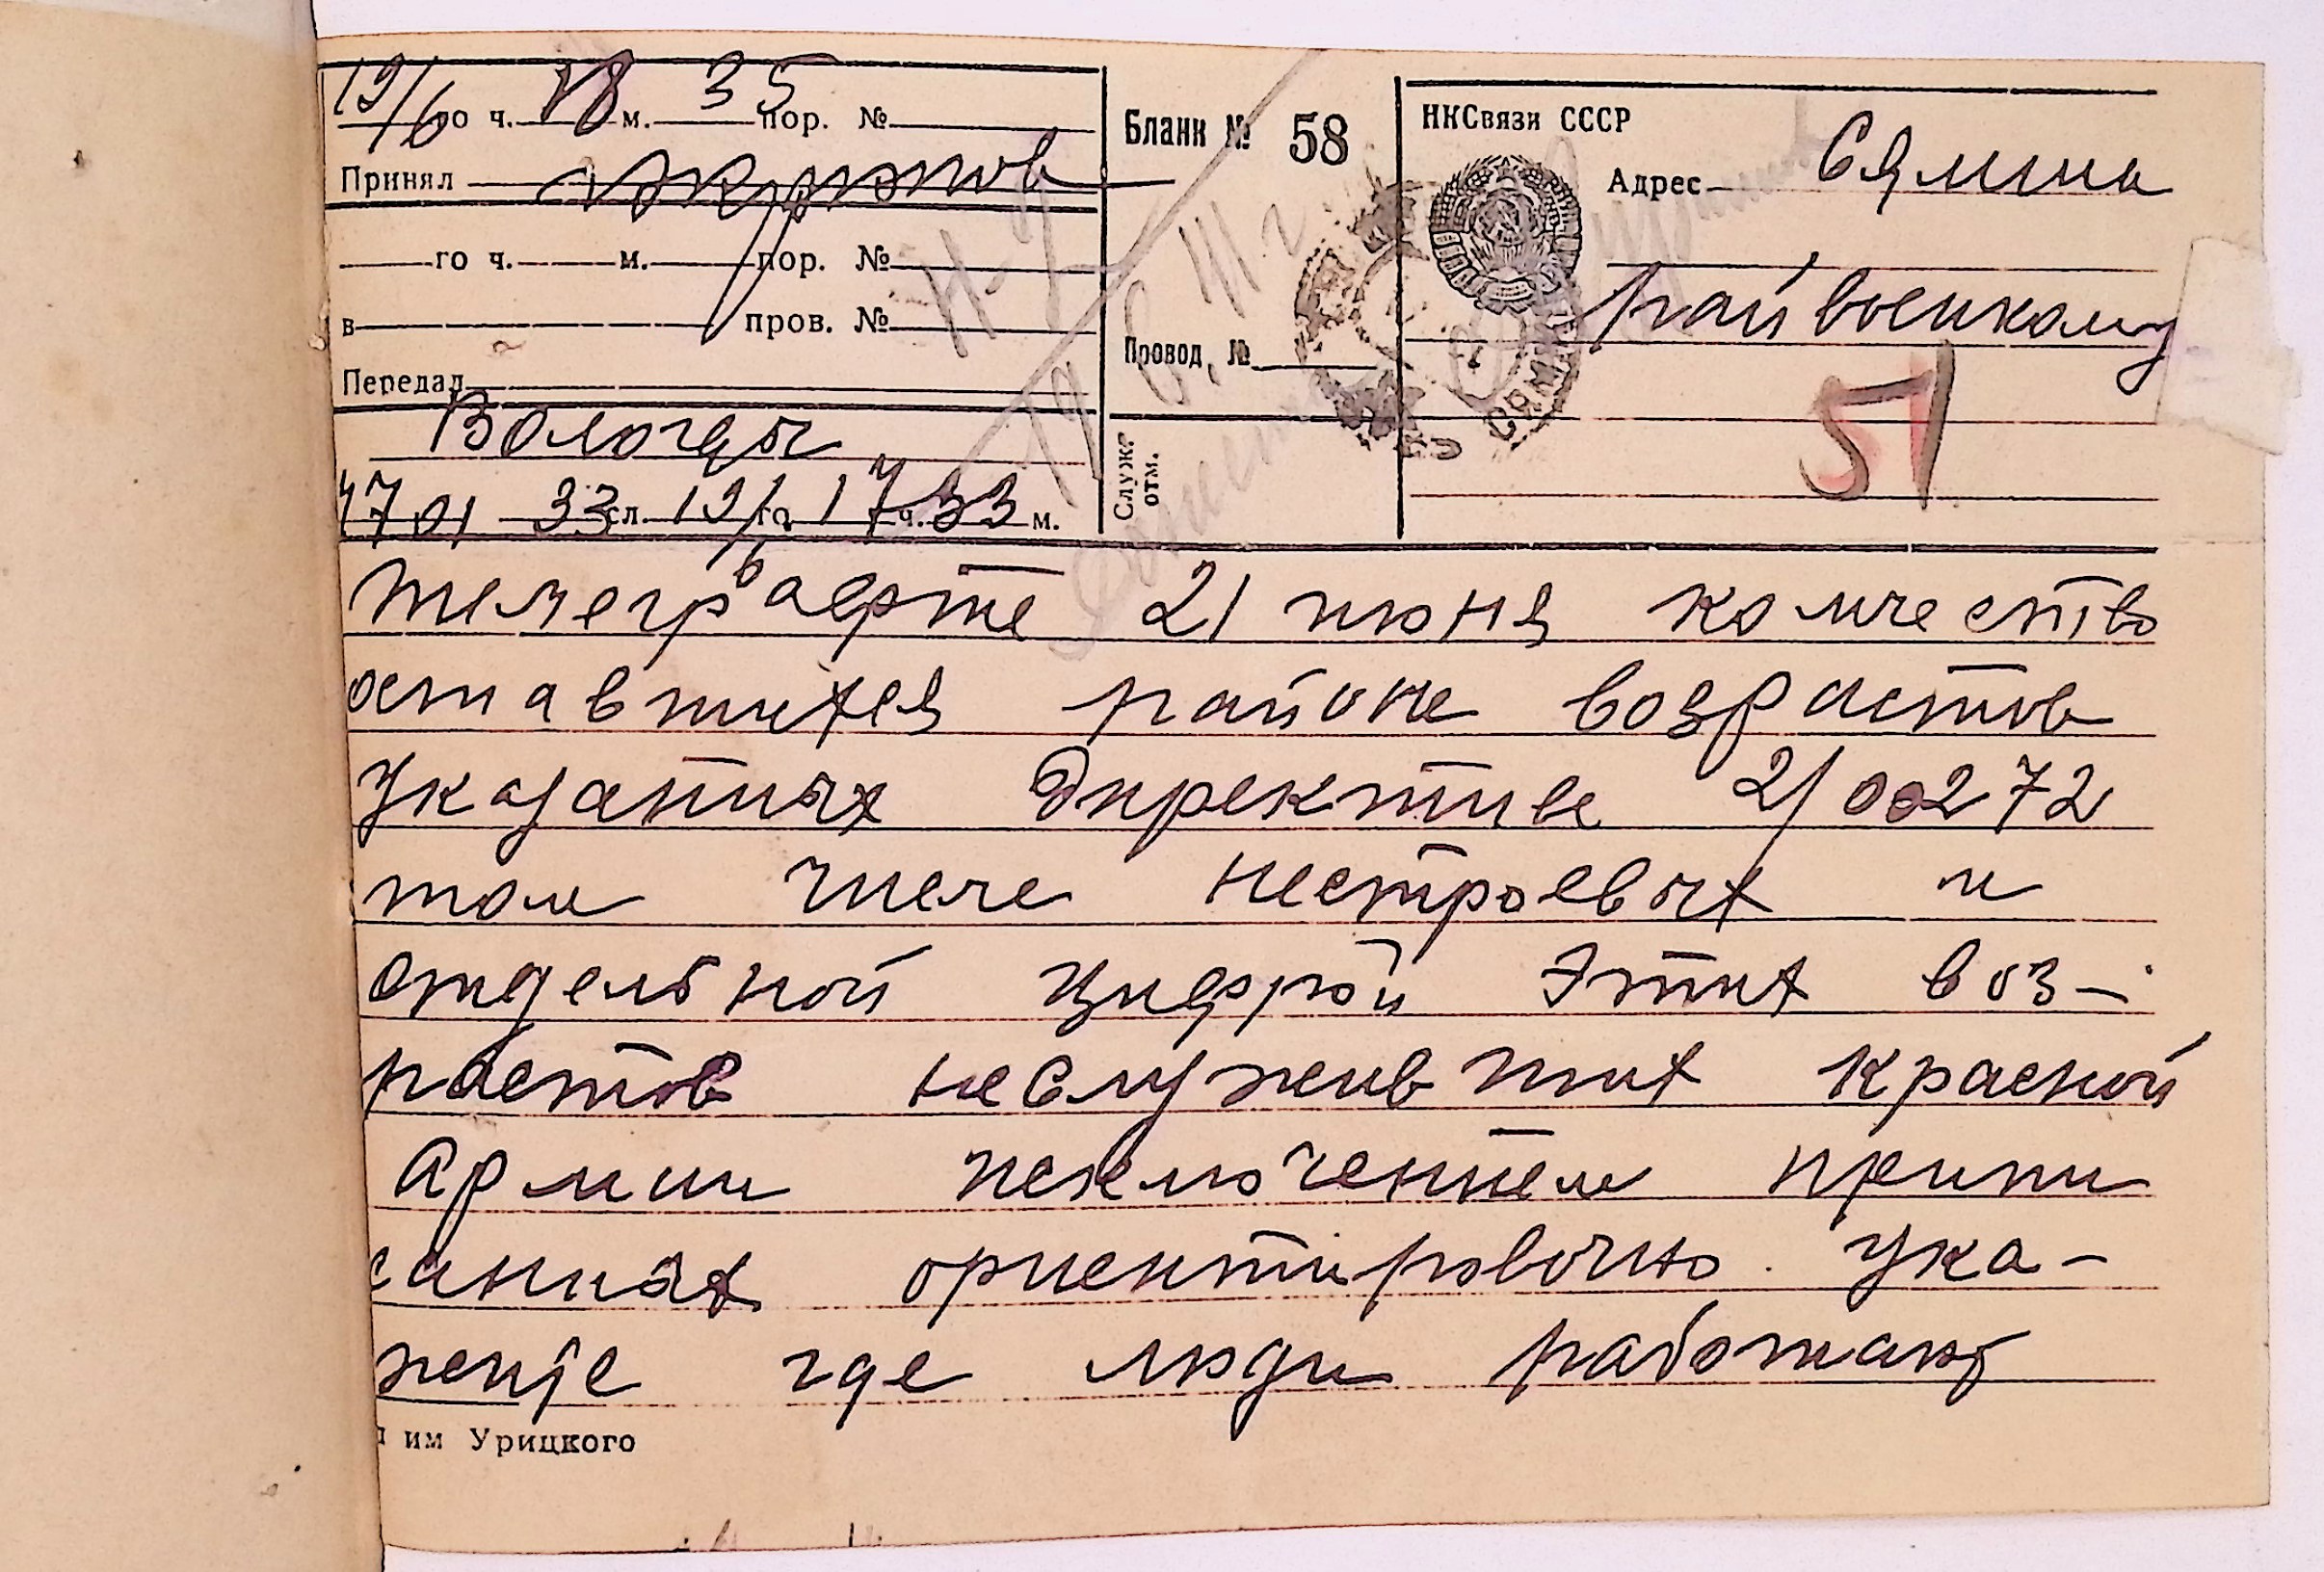 19/6 го ч. 18 м. 35 пор. №
Принял
го ч. м. пор. №
в пров. №
Передал
Вологды
4701 33 сл. 19/6 го 17 ч. 33 м.
Бланк № 58
Провод, №
Служ. отм.
19 6. 41 г.
НКСвязи СССР
Адрес Сямжа
райвоенкому
51
СЯМЖА
телеграфте 21 июня количество
оставшихся районе возрастов
указанных директиве 2/00272
том числе нестроевых и
отдельной цифрой этих воз-
растов неслуживших красной
Армии исключением припи
санных ориентировочно ука-
жите где люди работают
им Урицкого